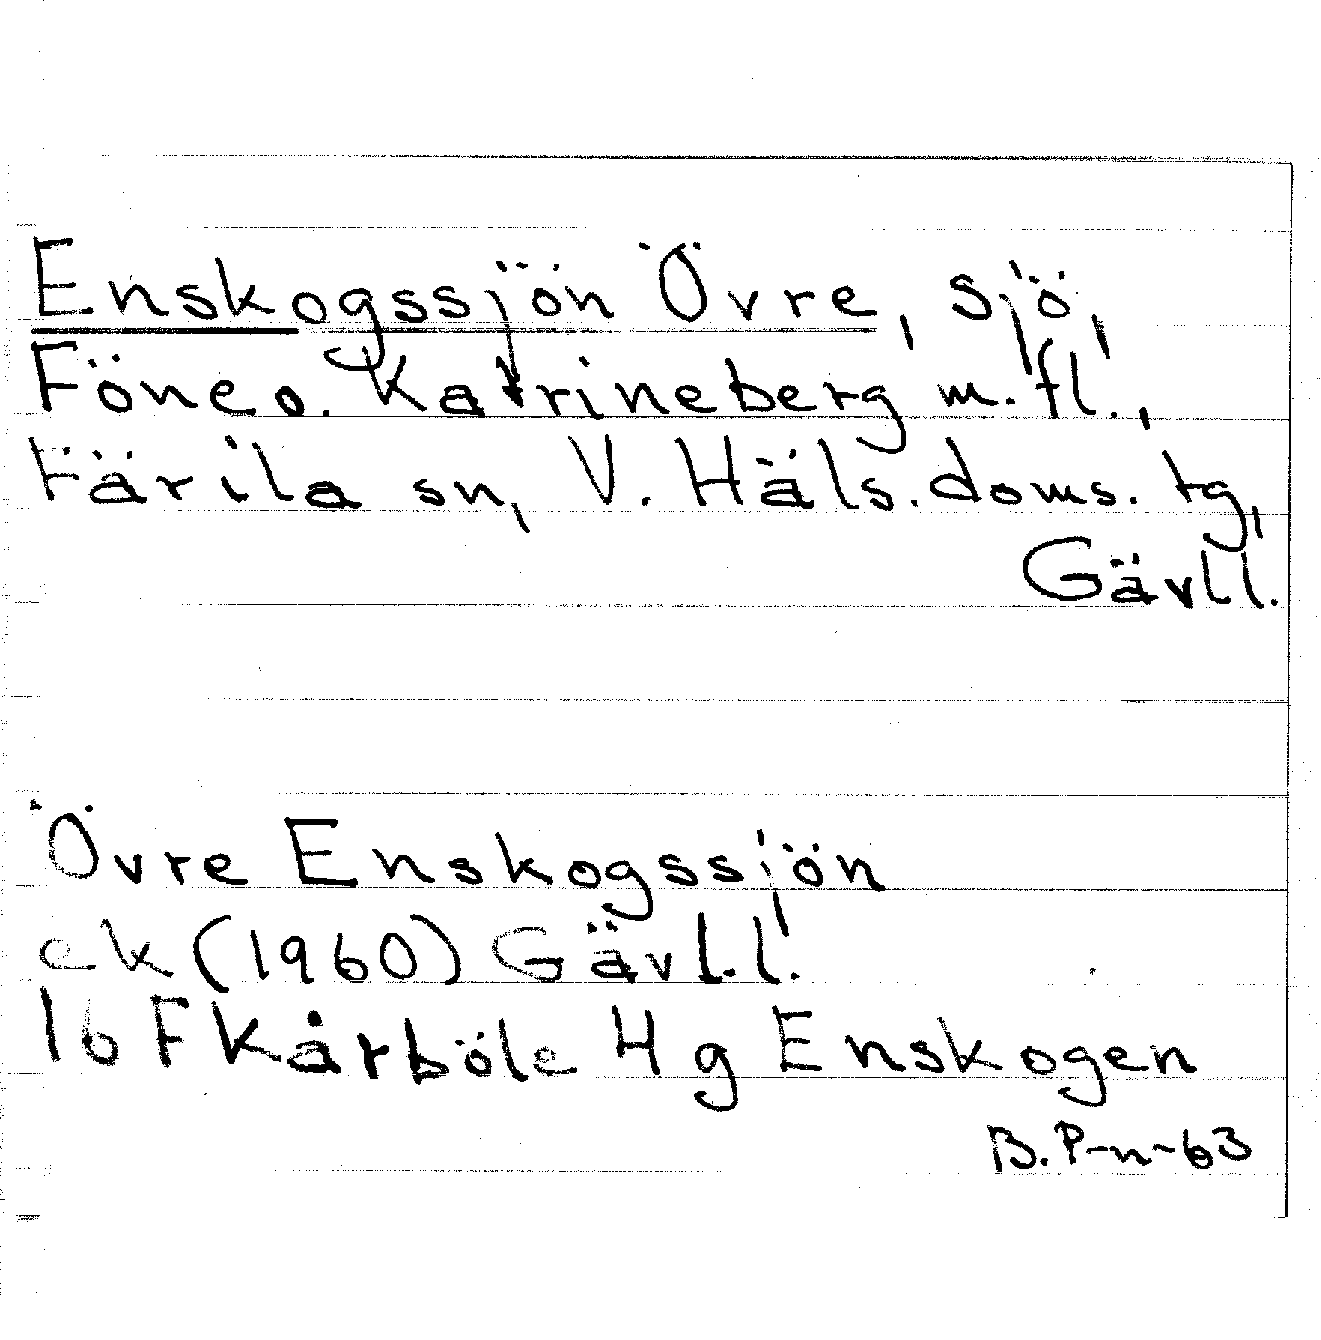 Enskogssjön Övre, sjö,
Föne o. Katrineberg m.fl.,
Färila sn, V. Häls. doms. tg,
Gävll.
Övre Enskogssjön
ek (1960) Gävl.l.
16 F Kårböle 4 g Enskogen
B.P-n-63